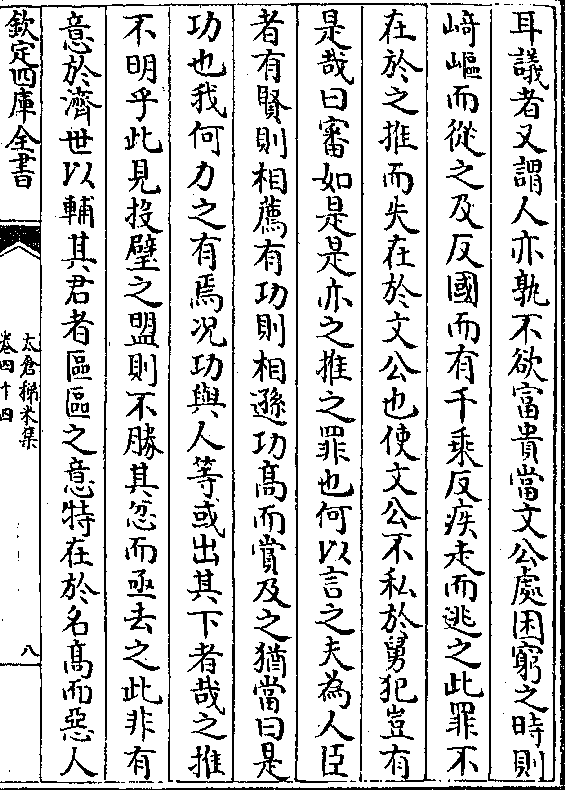 耳議者又謂人亦孰不欲富貴當文公處困窮之時則
﨑嶇而從之及反國而有千乘反疾走而逃之此罪不
在於之推而失在於文公也使文公不私於舅犯豈有
是哉曰審如是是亦之推之罪也何以言之夫為人臣
者有賢則相薦有功則相遜功髙而賞及之猶當曰是
功也我何力之有焉况功與人等或出其下者哉之推
不明乎此見投璧之盟則不勝其忿而亟去之此非有
意於濟世以輔其君者區區之意特在於名髙而惡人
欽定四庫全書
太倉稊米集
卷四十四
八